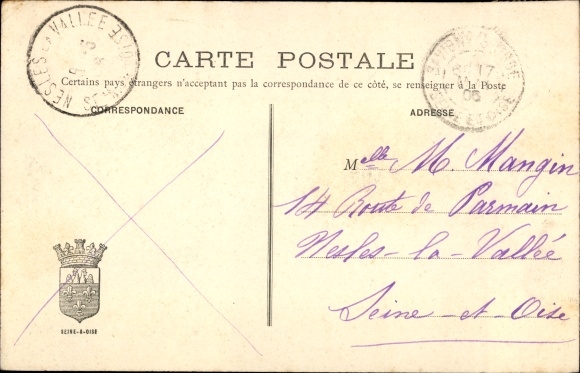 NESLES LA VALLÉE
CARTE POSTALE
Certains pays étrangers n'acceptant pas la correspondance de ce côté, se renseigner à la Poste
CORRESPONDANCE
ADRESSE
Melle M. Mangin
14 Route de Parmain
Nesles-la-Vallée
Seine-et-Oise
SEINE-&-OISE